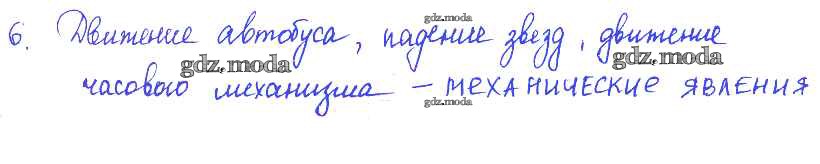 6. Движение автобуса, падение звезд, движение
часового механизма – МЕХАНИЧЕСКИЕ ЯВЛЕНИЯ
gdz.moda
gdz.moda
gdz.moda
gdz.moda
gdz.moda